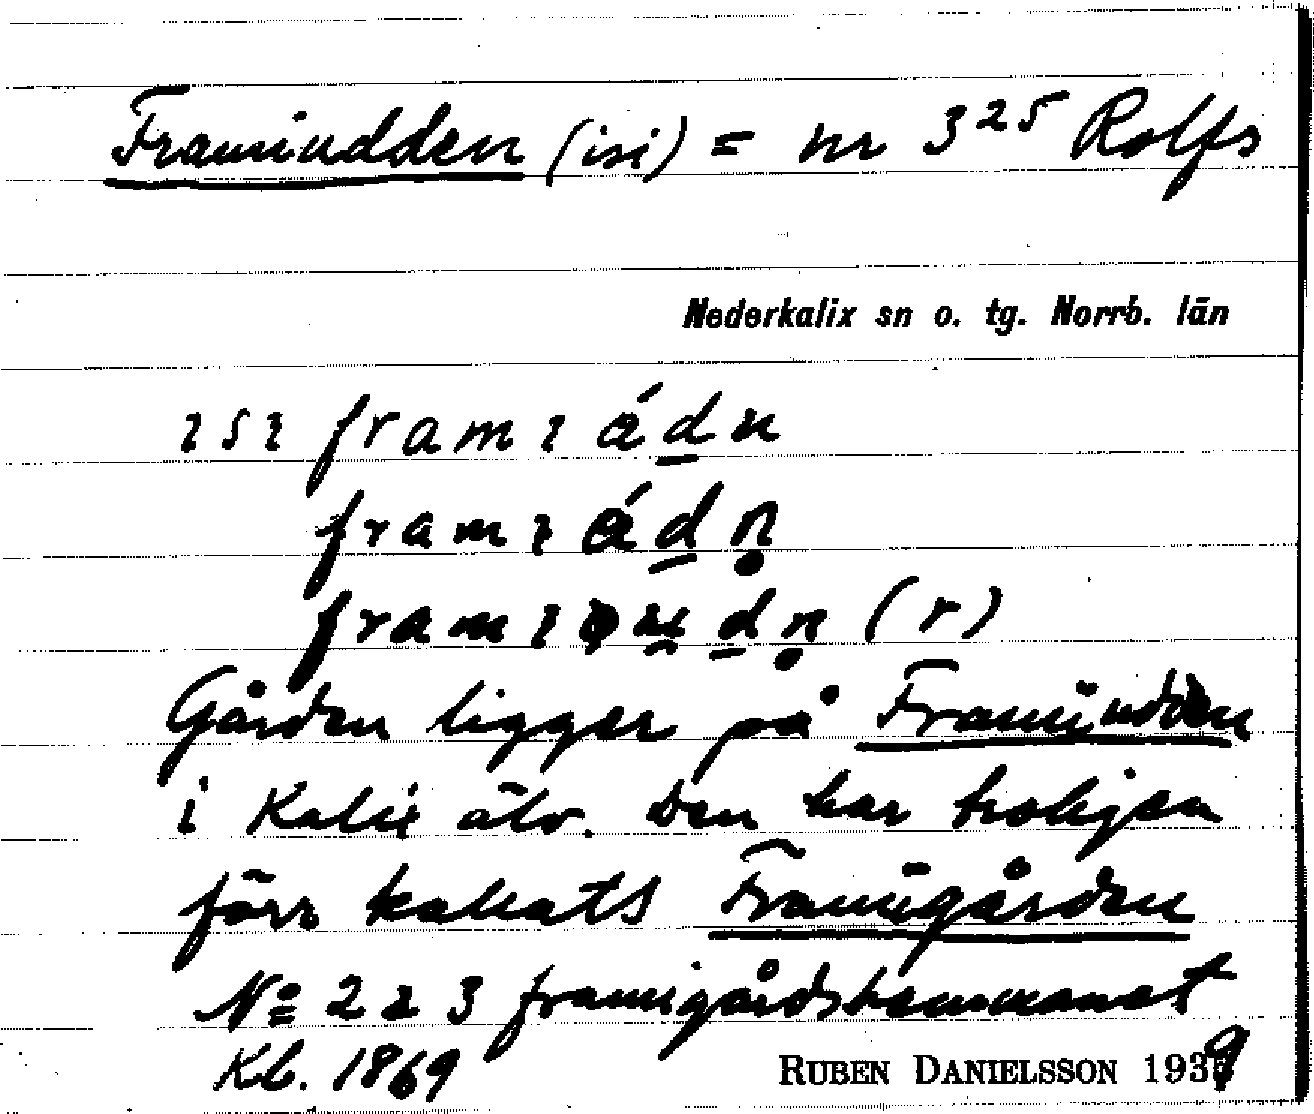 Framiudden (isi) = nr 3²⁵ Rolfs
Nederkalix sn o. tg. Norrb. län
ısı framı ádn
framı ádn
framı udn (r)
Gården ligger på Framiudden
i Kalix älv. Den har troligen
förr kallats Framigården
No 2 a 3 framigårdshemmanet
Kb. 1869
RUBEN DANIELSSON 1939